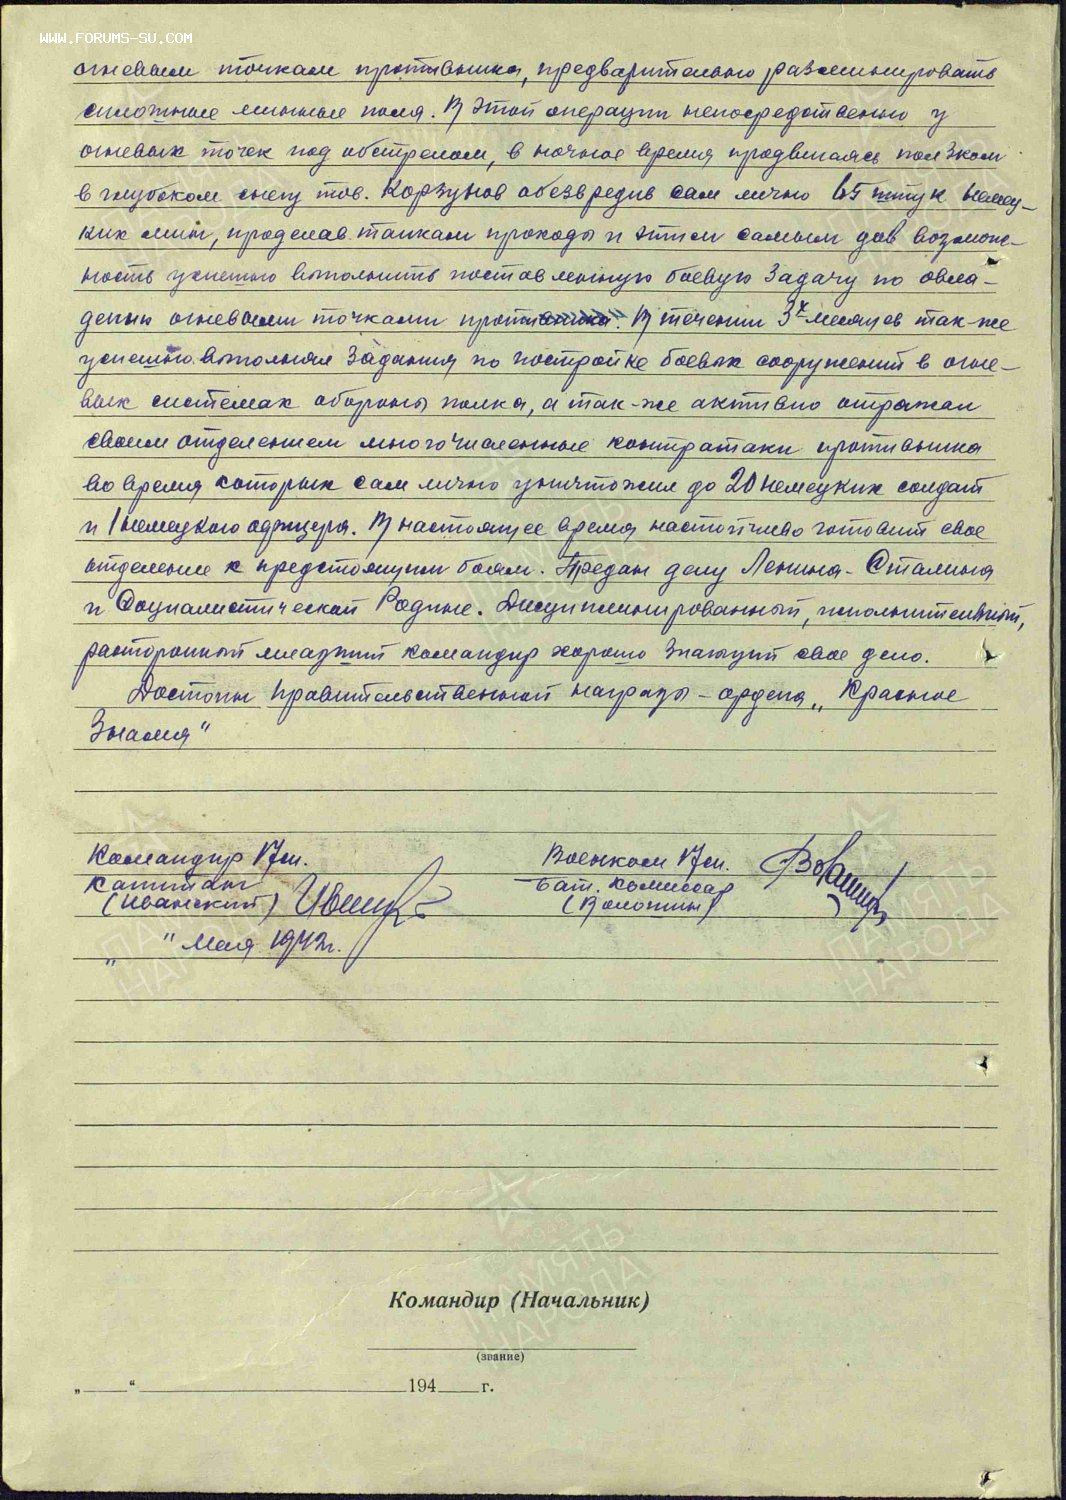 WWW.FORUMS-SU.COM
огневым точкам противника, предварительно разминировать
сплошные минные поля. В этой операции непосредственно у
огневых точек под обстрелом, в ночное время продвигаясь ползком
в глубоком снегу тов. Корзунов обезвредив сам лично 65 штук немец-
ких мин, проделав танкам проходы и этим самым дав возмож-
ность успешно выполнить поставленную боевую задачу по овла-
дению огневыми точками противника. В течении 3х месяцев так-же
успешно выполнял задания по постройке боевых сооружений в огне-
вых системах обороны полка, а так-же активно отражал
своим отделением многочисленные контратаки противника
во время которых сам лично уничтожил до 20 немецких солдат
и 1 немецкого офицера. В настоящее время настойчиво готовит свое
отделение к предстоящим боям. Предан делу Ленина-Сталина
и Социалистической Родине. Дисциплинированный, исполнительный,
расторопный младший командир хорошо знающий свое дело.
Достоин правительственной награды - ордена „Красное
Знамя"
Командир 17 сп.
Капитан
(Иванский)
Военком 17 сп.
Бат. комиссар
(Волошин)
„ " Мая 1942г.
ПАМЯТЬ
НАРОДА
Командир (Начальник)
(звание)
„ “ 194 г.